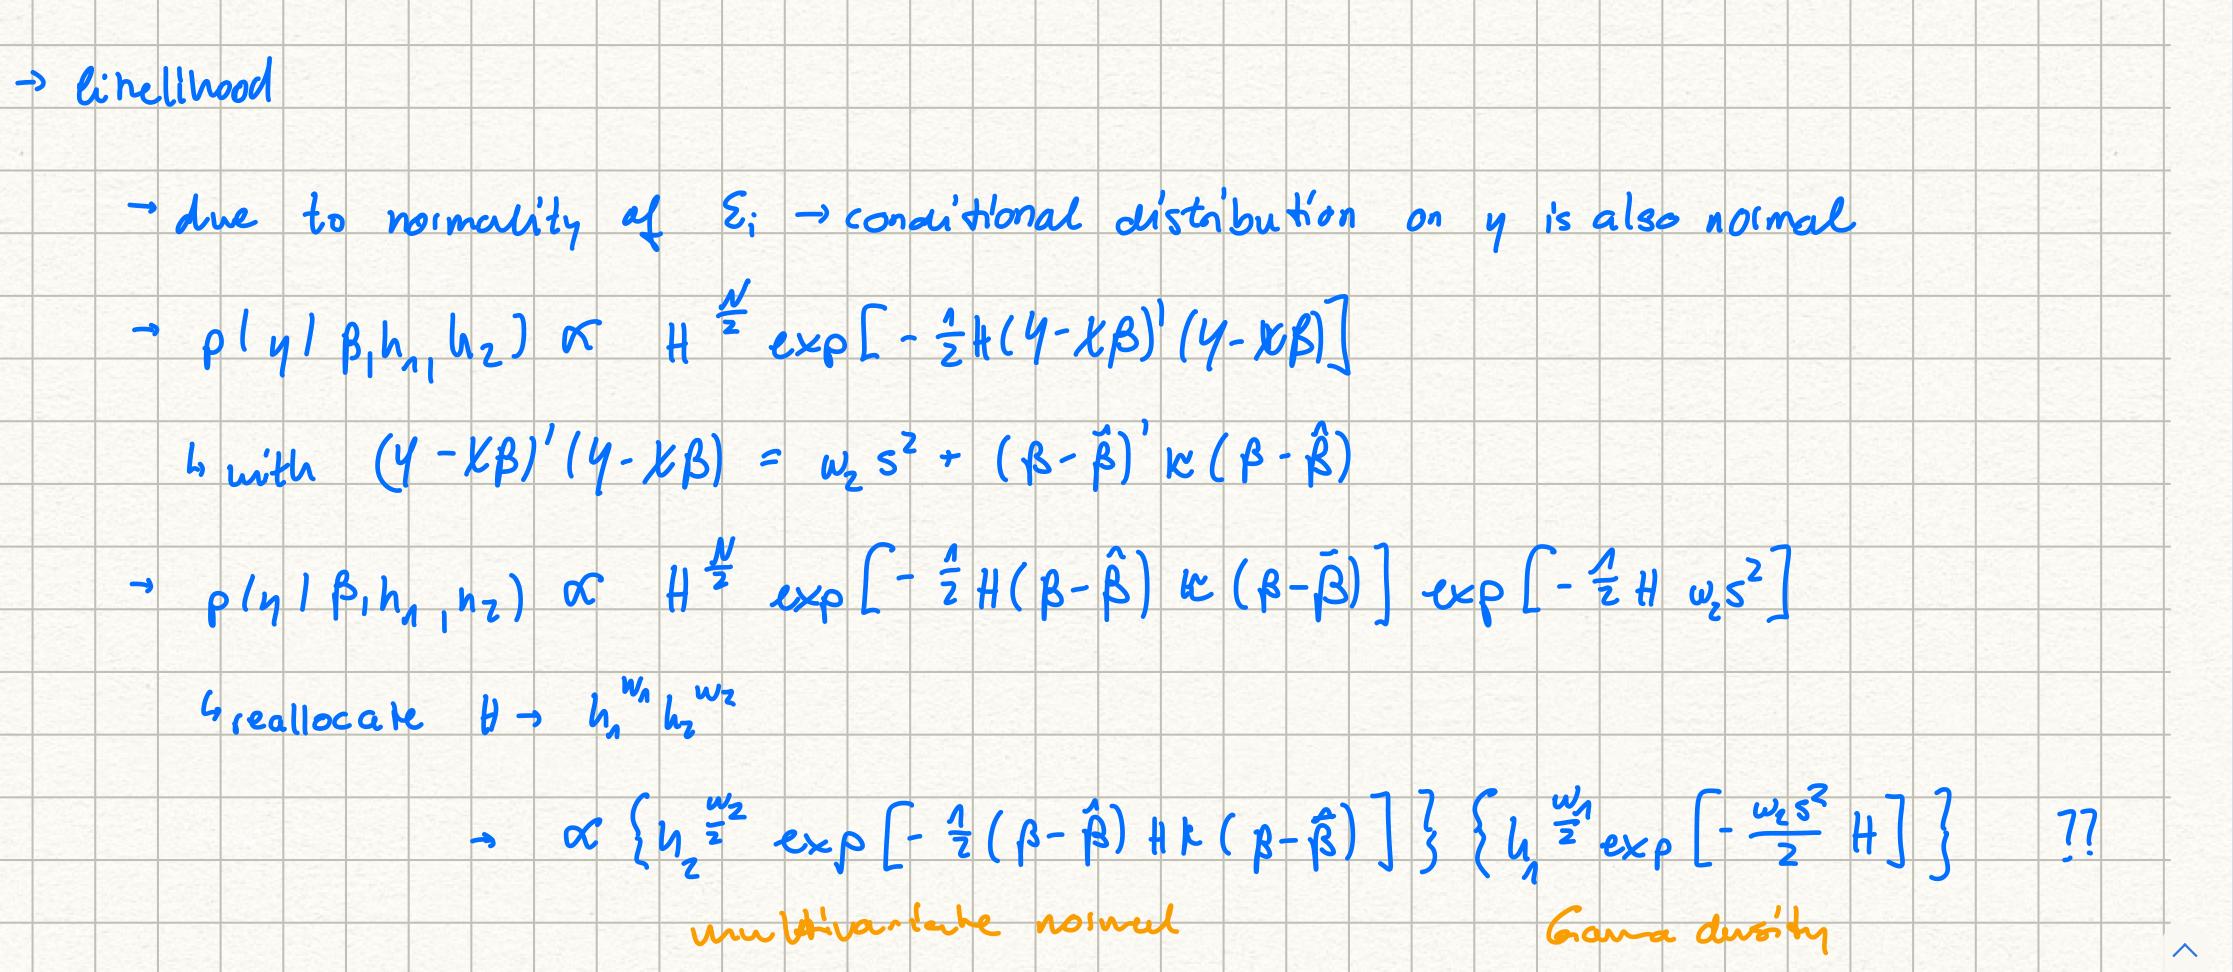 → likelihood
→ due to normality of ε_i → conditional distribution on y is also normal
→ p(y | β, h_1, h_2) ∝ H^{N/2} exp[-1/2 H(y-Xβ)'(y-Xβ)]
↳ with (y-Xβ)'(y-Xβ) = w_2 s^2 + (β-β̂)' K (β-β̂)
→ p(y | β, h_1, h_2) ∝ H^{N/2} exp[-1/2 H(β-β̂) K (β-β̂)] exp[-1/2 H w_2 s^2]
↳ reallocate H → h_1^{w_1} h_2^{w_2}
→ ∝ {h_2^{w_2/2} exp[-1/2 (β-β̂) H K (β-β̂)]} {h_1^{w_1/2} exp[-w_2 s^2/2 H]} ??
multivariate normal Gama density